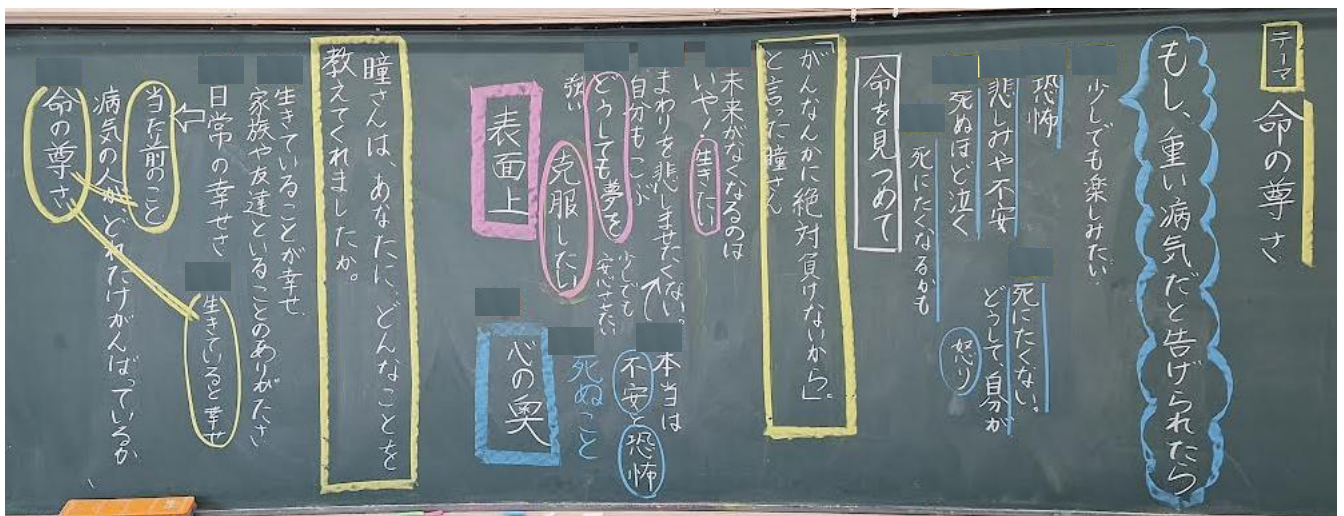 テーマ
命の尊さ
もし、重い病気だと告げられたら
少しでも楽しみたい
恐怖
悲しみや不安
死ぬほど泣く
死にたくなるかも
死にたくない。
どうして、自分が
怒り
命を見つめて
「がんなんかに絶対負けないから」。
と言った瞳さん
未来がなくなるのは
いや！生きたい
まわりを悲しませたくない。
自分もこぶ
どうしても夢を
強い
克服したい
少しでも
安心させたい
表面上
本当は
不安と恐怖
死ぬこと
心の奥
瞳さんは、あなたに、どんなことを
教えてくれましたか。
生きていることが幸せ
家族や友達といることのありがたさ
日常の幸せさ
生きていると幸せ
当たり前のこと
病気の人がどれだけがんばっているか
命の尊さ